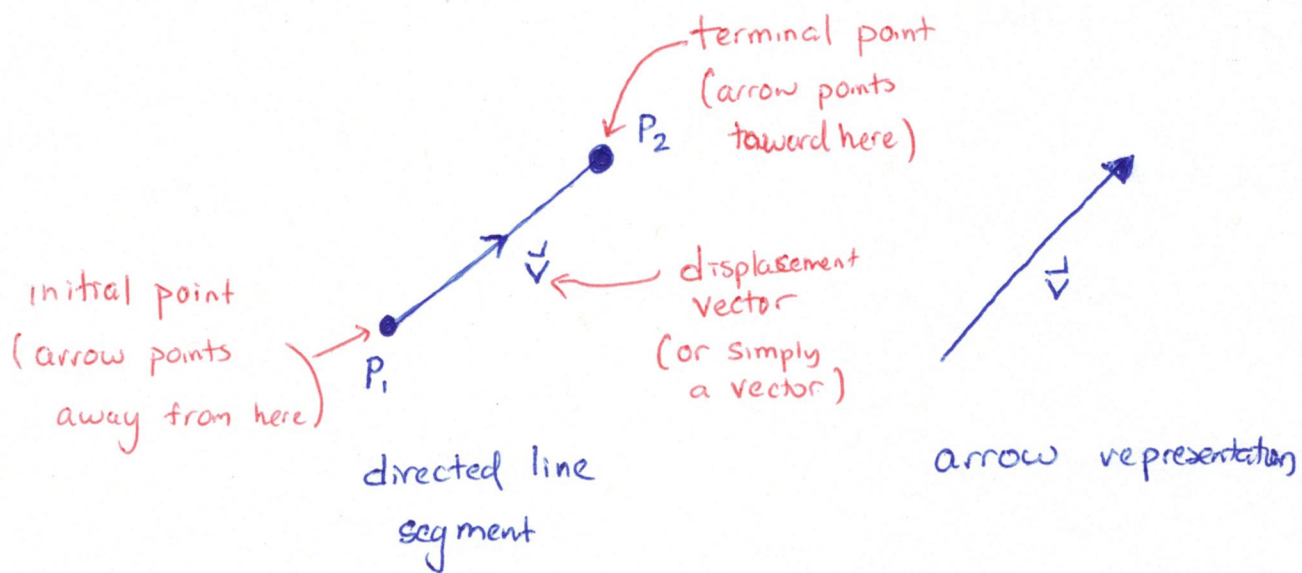 terminal point
(arrow points
toward here)
P₂
v⃗
displacement
vector
(or simply
a vector)
initial point
(arrow points
away from here)
P₁
directed line
segment
v⃗
arrow representation